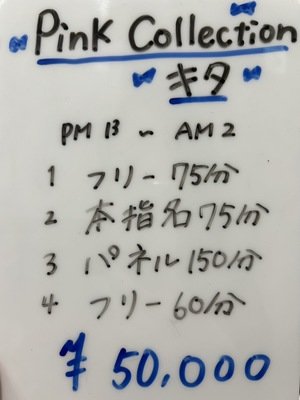 Pink Collection
キタ
PM 13 ~ AM 2
1 フリー 75分
2 本指名 75分
3 パネル 150分
4 フリー 60分
¥ 50,000